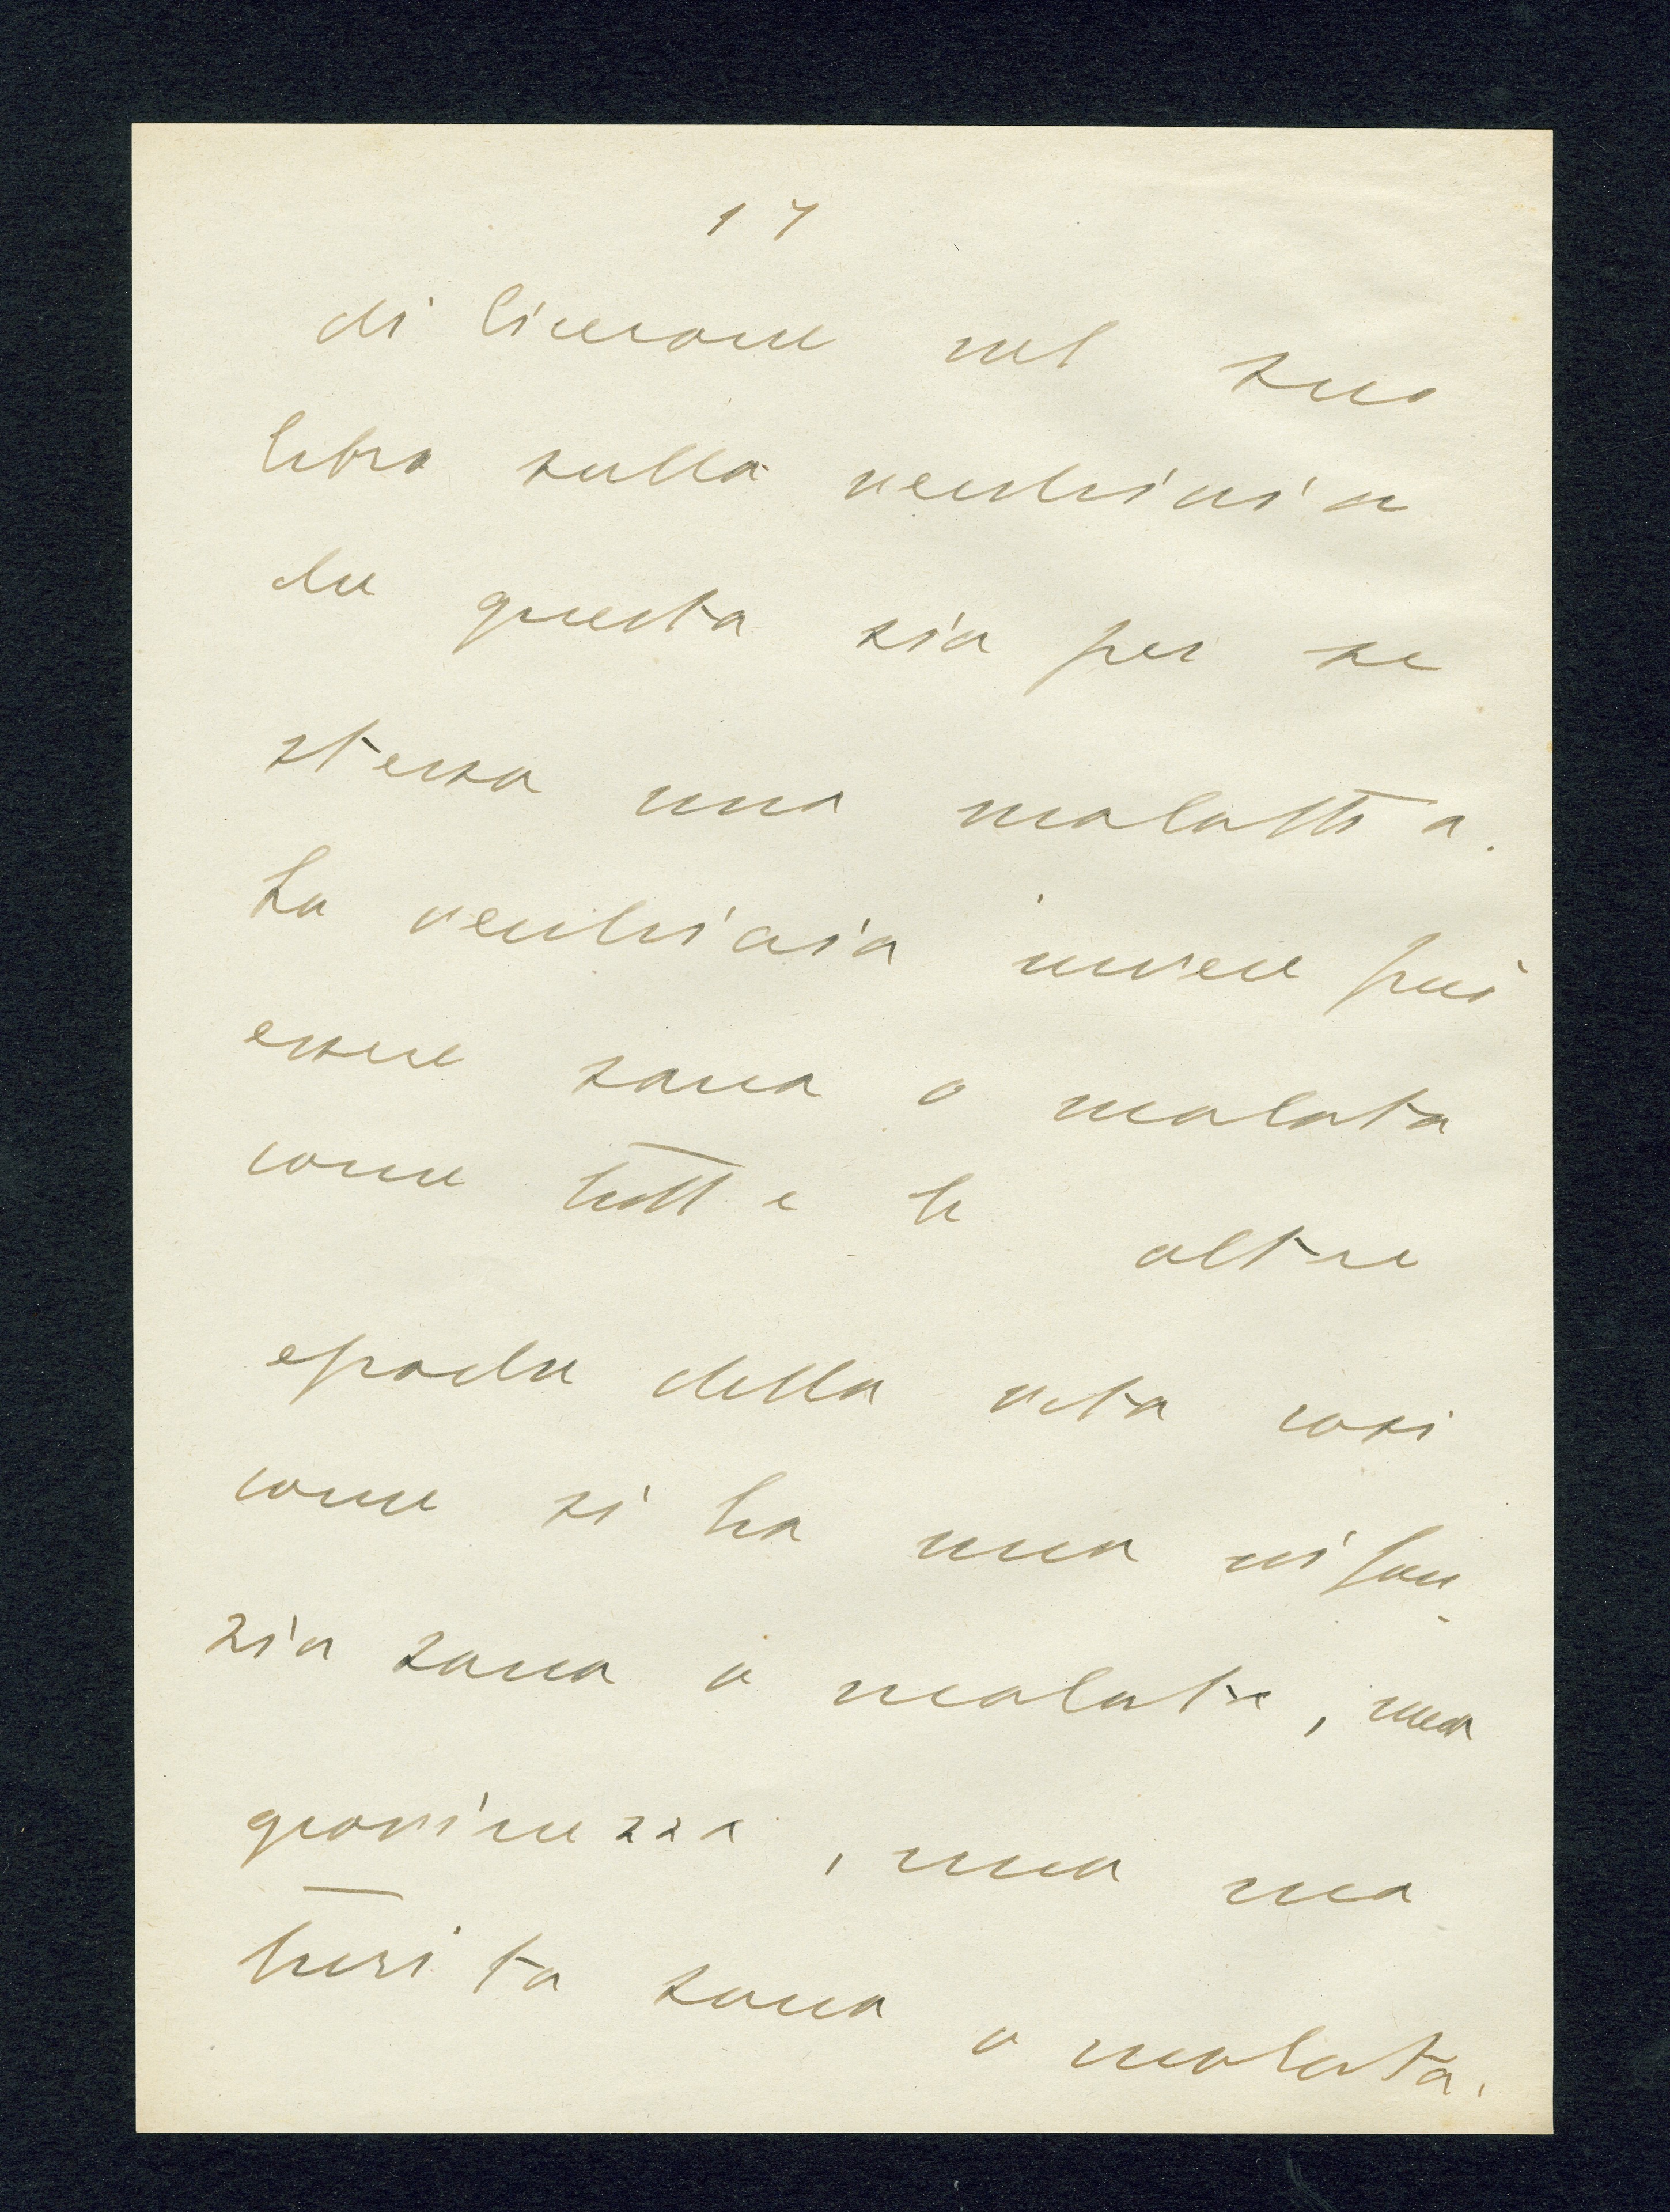 17
di Cicerone nel suo
libro sulla vecchiaia
che questa sia per se
stessa una malattia.
La vecchiaia invece può
essere sana o malata
come tutte le altre
epoche della vita così
come si ha una infan-
zia sana o malata, una
giovinezza, una ma
turità sana o malata.